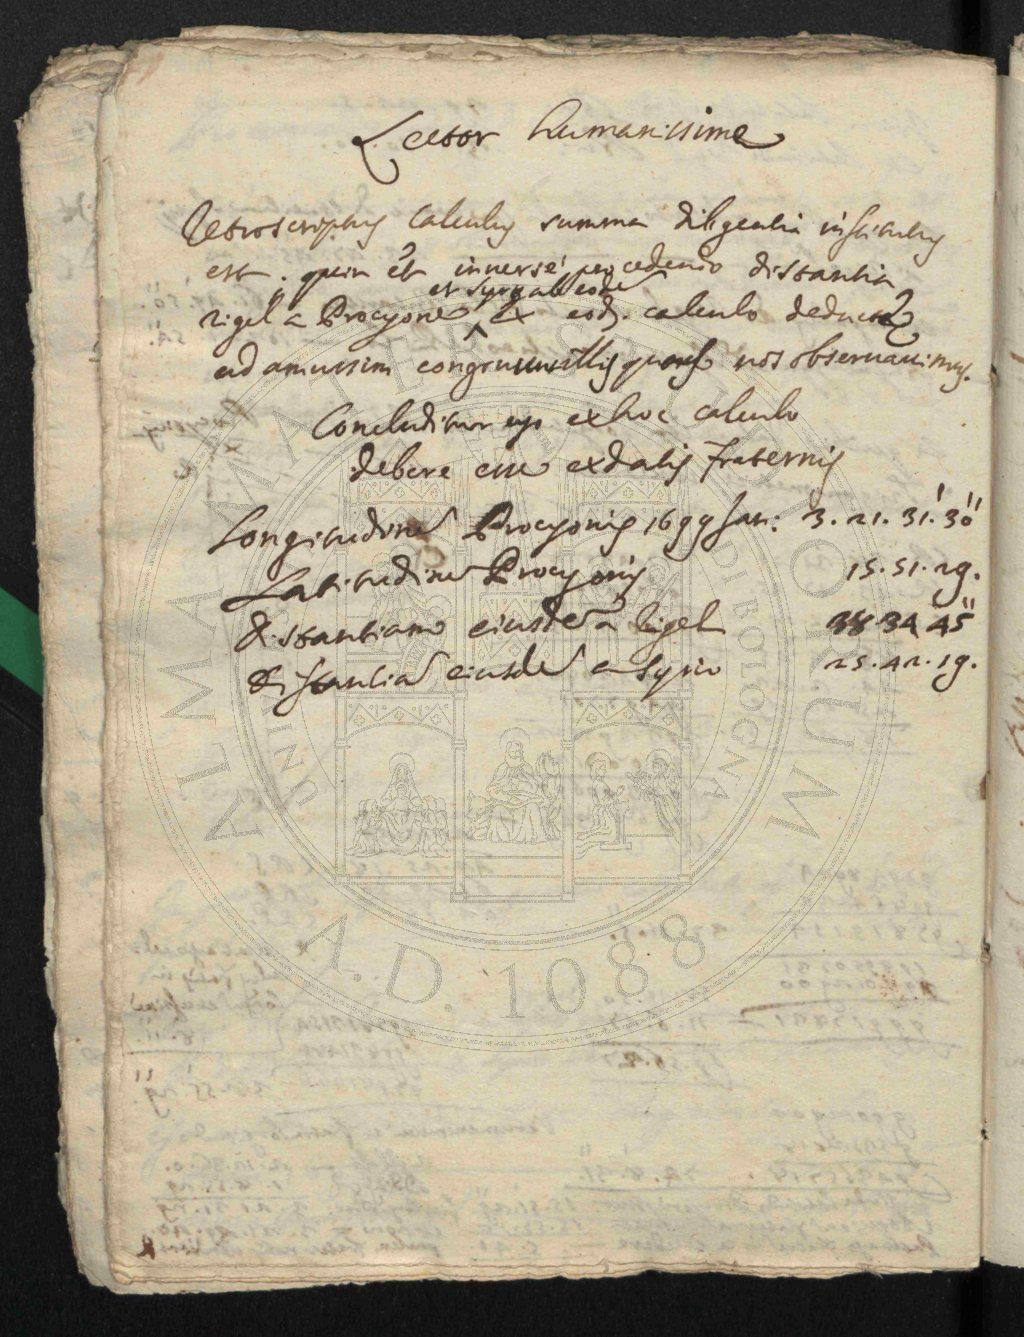 Lector humanissime
Retroscriptus calculus summa diligentia institutus
est. quin et inverse procedendo distantia
et syrij ab eode
rigel a Procyone ex eod. calculo deducta
ad amussim congruun illis quas nos observavimus.
Concluditur ex hoc calculo
debere esse ex datis fraternis
Longitudine Procyonis 1699 Jan: 3. 21. 31. 30''
Latitudine Procyonis 15. 51. 29.
distantiam eiusde a Rigel 38 34 45''
distantia eiusde a Syrio 25. 42. 19.
ALMA MATER STUDIORUM
UNI BOLOGNA
A.D. 1088